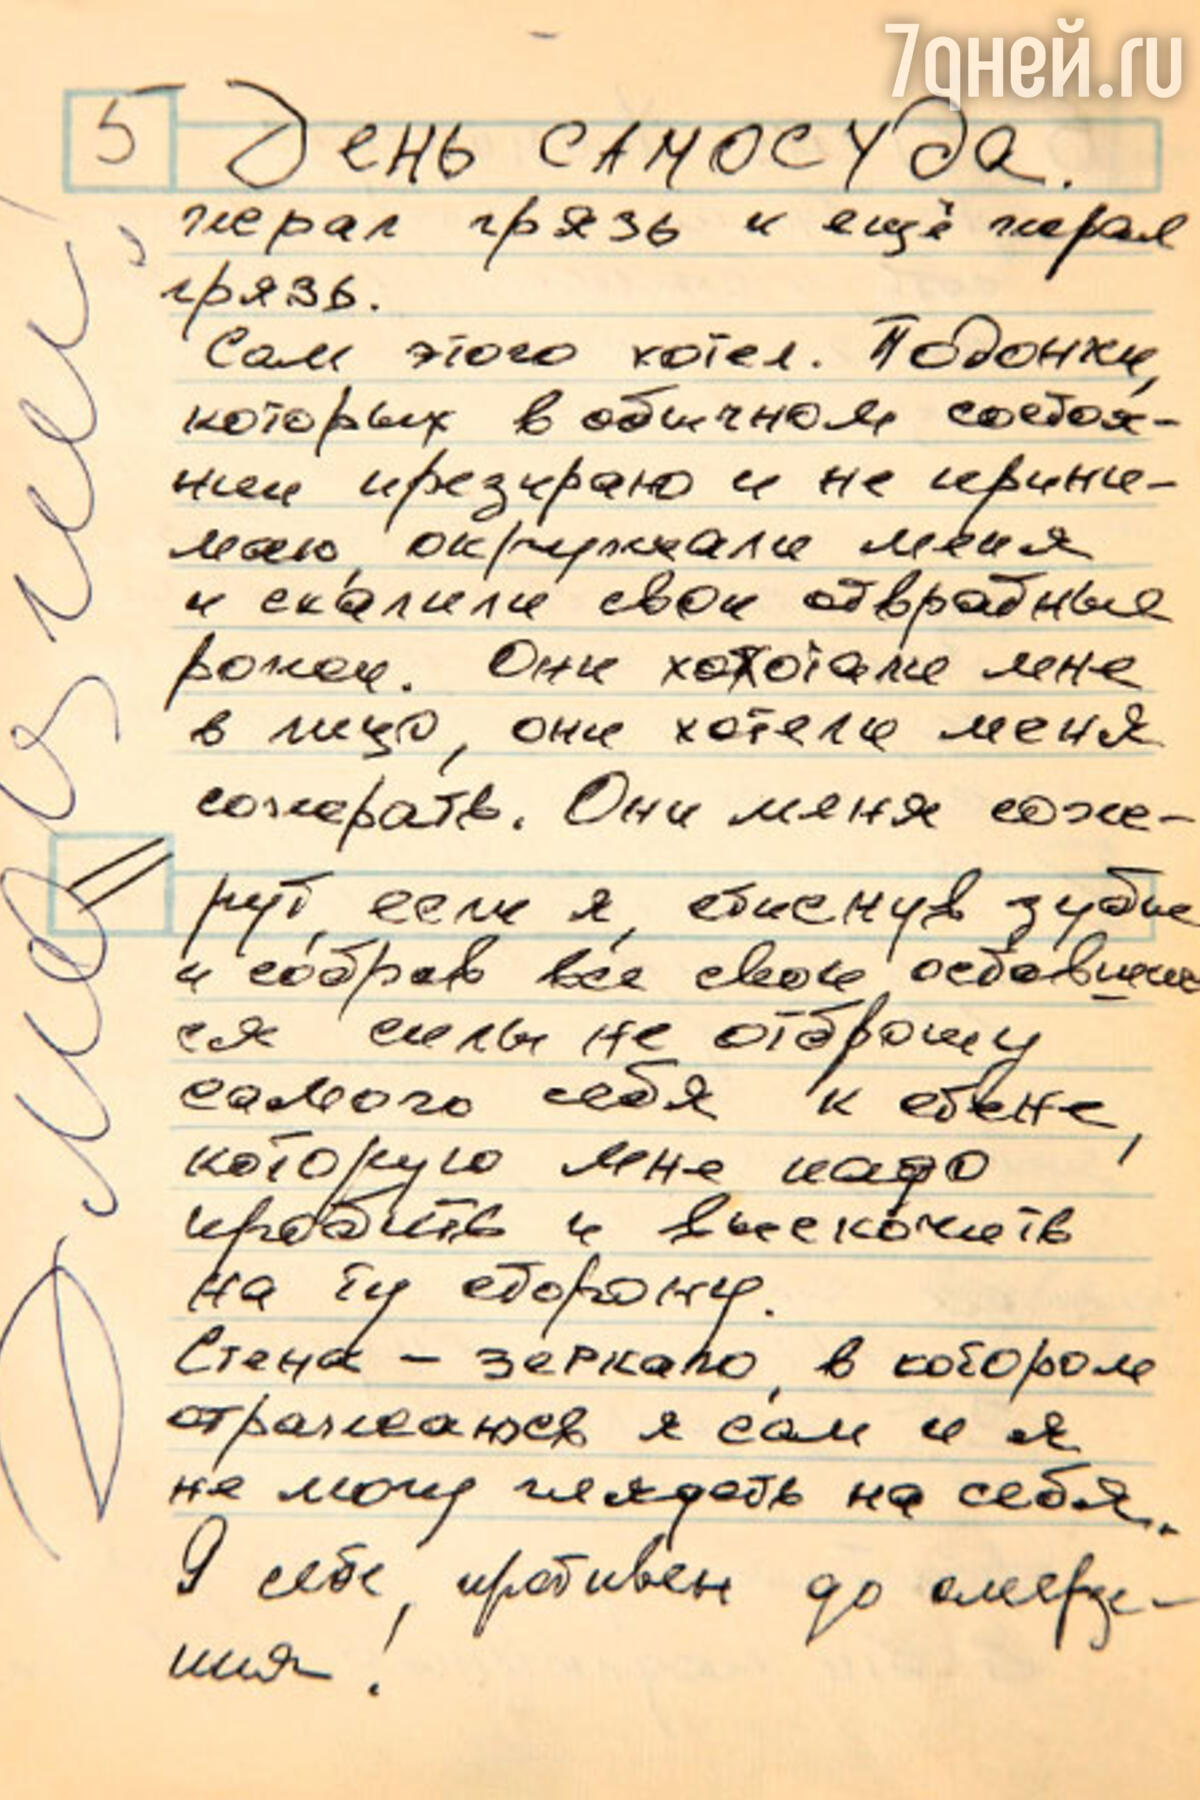 7дней.ru
5 День самосуда.
жерал грязь и ещё жерал
грязь.
Сам этого хотел. Подонки,
которых в обычном состоя-
нии презираю и не прини-
маю, окружали меня
и скалили свои отвратные
рожи. Они хохотали мне
в лицо, они хотели меня
сожрать. Они меня сож-
рут, если я, стиснув зубы
и собрав все свои оставшие
ся силы не отброшу
самого себя к стене,
которую мне надо
пробить и выскочить
на ту сторону.
Стена – зеркало, в котором
отражаюсь я сам и я
не могу глядеть на себя.
Я себе, противен до омерзе-
ния!